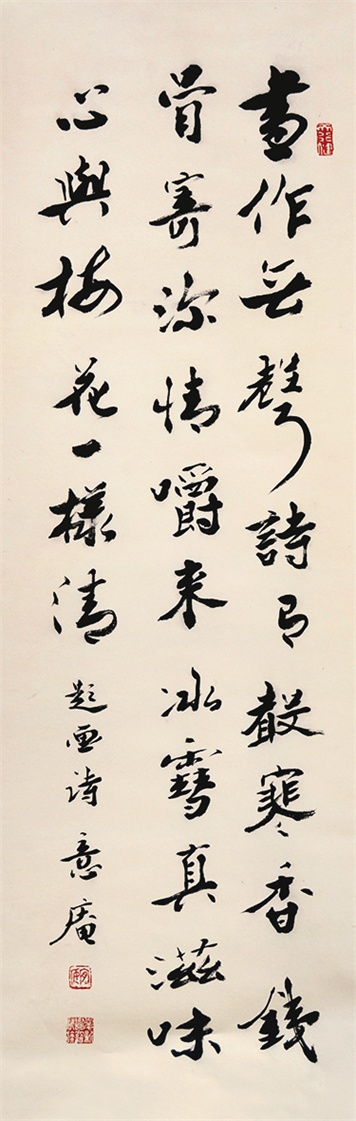 畫作無聲詩有聲寒香鐵
骨寄深情嚼來冰雪真滋味
心與梅花一樣清 題畫詩 意庵